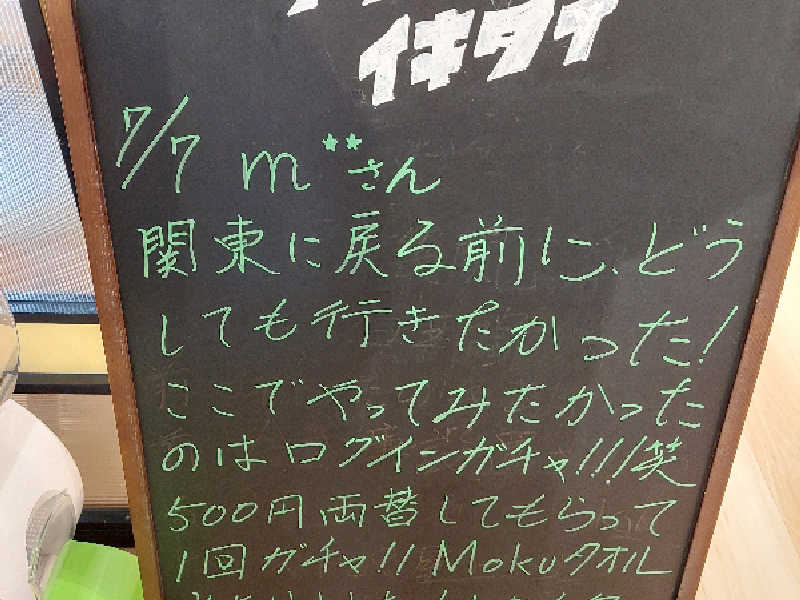 イキタイ
7/7 m**さん
関東に戻る前に、どう
しても行きたかった!
ここでやってみたかった
のはログインガチャ!!!笑
500円両替してもらって
1回ガチャ!! Mokuタオル